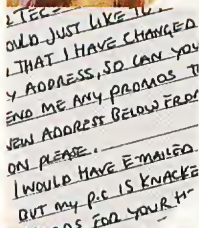 OULD JUST LIKE
THAT I HAVE CHANGED
Y ADDRESS, SO CAN YOU
END ME ANY PROMOS T
NEW ADDRESS BELOW FROM
ON PLEASE.
I WOULD HAVE E-MAILED
BUT MY P.C IS KNACKE
FOR YOUR H